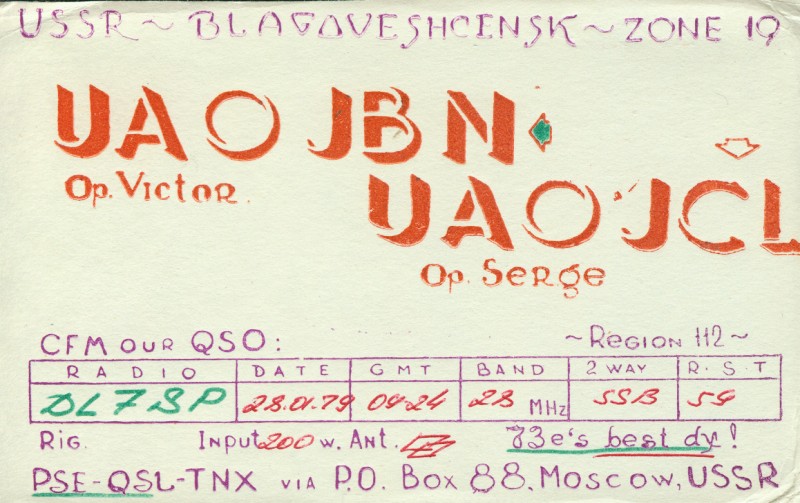 USSR ~ BLAGOVESHCENSK ~ ZONE 19
UA0JBN
Op. Victor.
UA0JCL
Op. Serge
CFM OUR QSO: ~ REGION 112 ~
RADIO DATE GMT BAND 2 WAY R.S.T
DL7SP 28.01.79 0424 28 MHz SSB 59
Rig. Input 200 w. Ant. 73e's best dx!
PSE-QSL-TNX VIA P.O. Box 88, Moscow, USSR